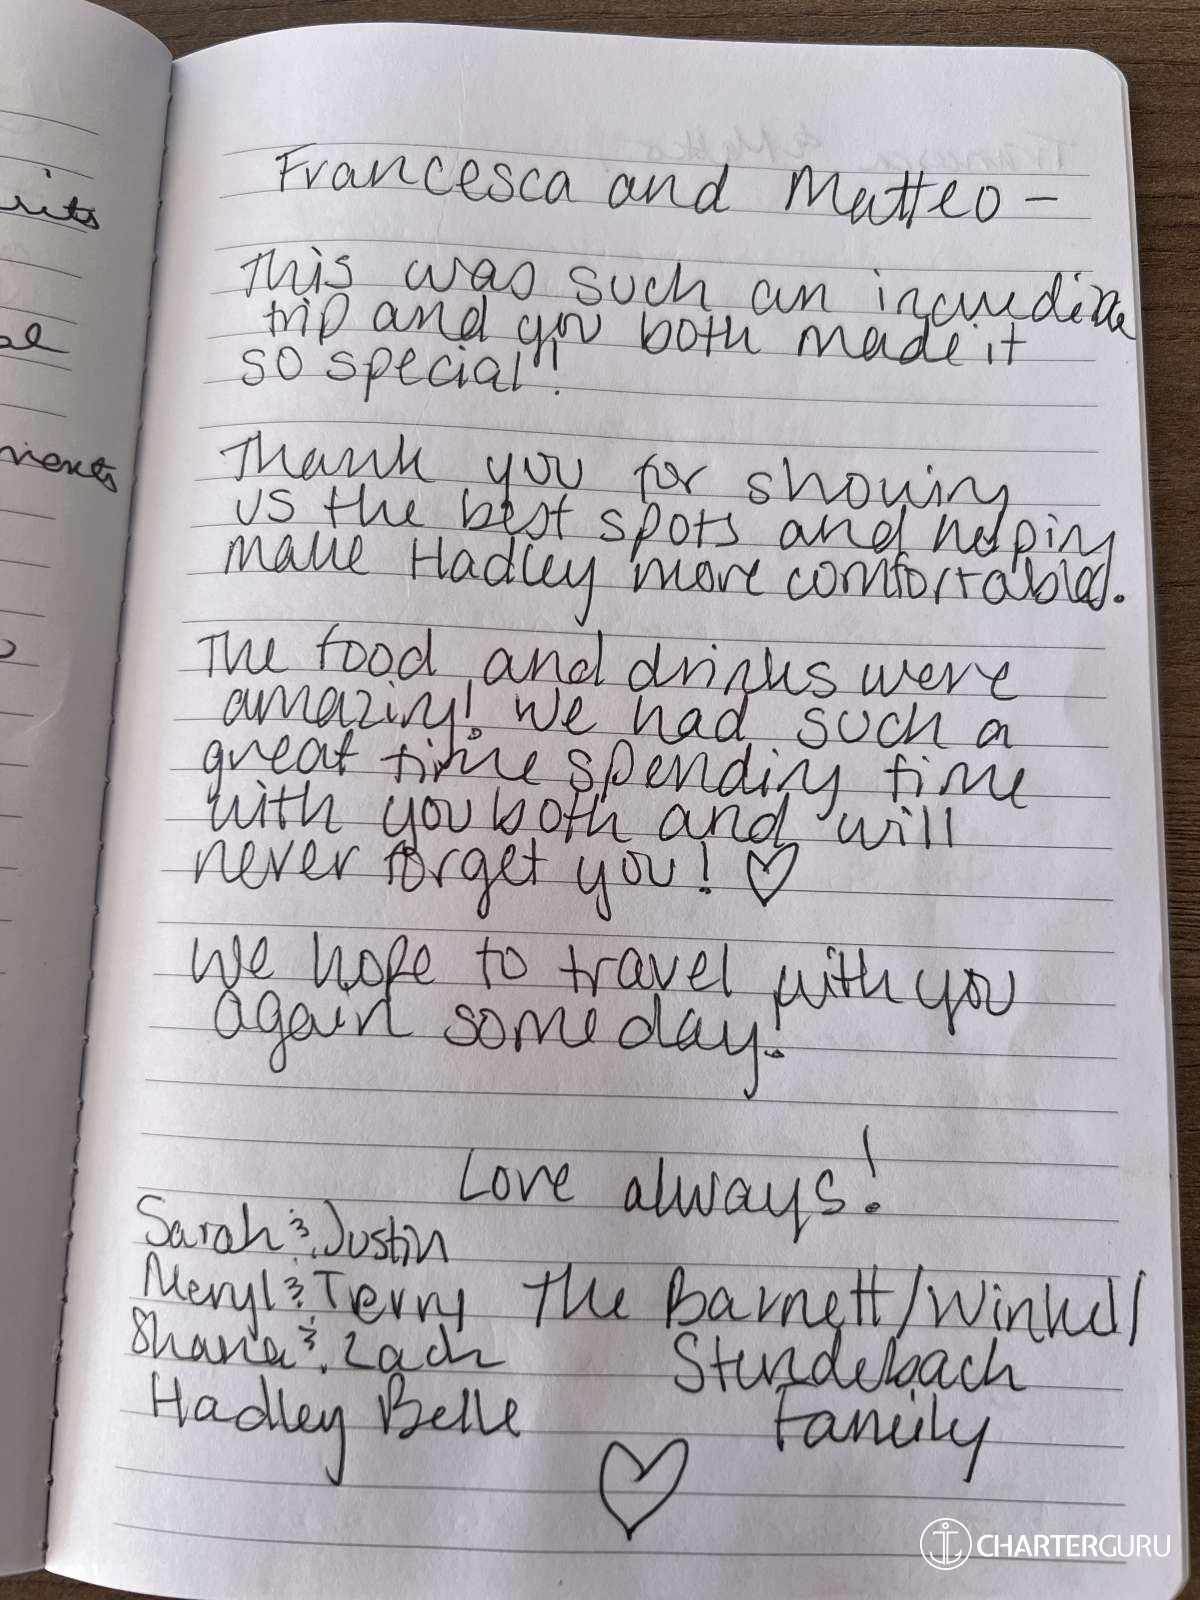 Francesca and Matteo -
This was such an incredible
trip and you both made it
so special!!
Thank you for showing
us the best spots and helping
make Hadley more comfortable.
The food and drinks were
amazing! We had such a
great time spending time
with you both and will
never forget you! ♡
We hope to travel with you
again someday!
Love always!
Sarah & Justin
Meryl & Terry The Barnett/Winkel/
Shana & Zach Stundebach
Hadley Belle Family
♡
CHARTERGURU